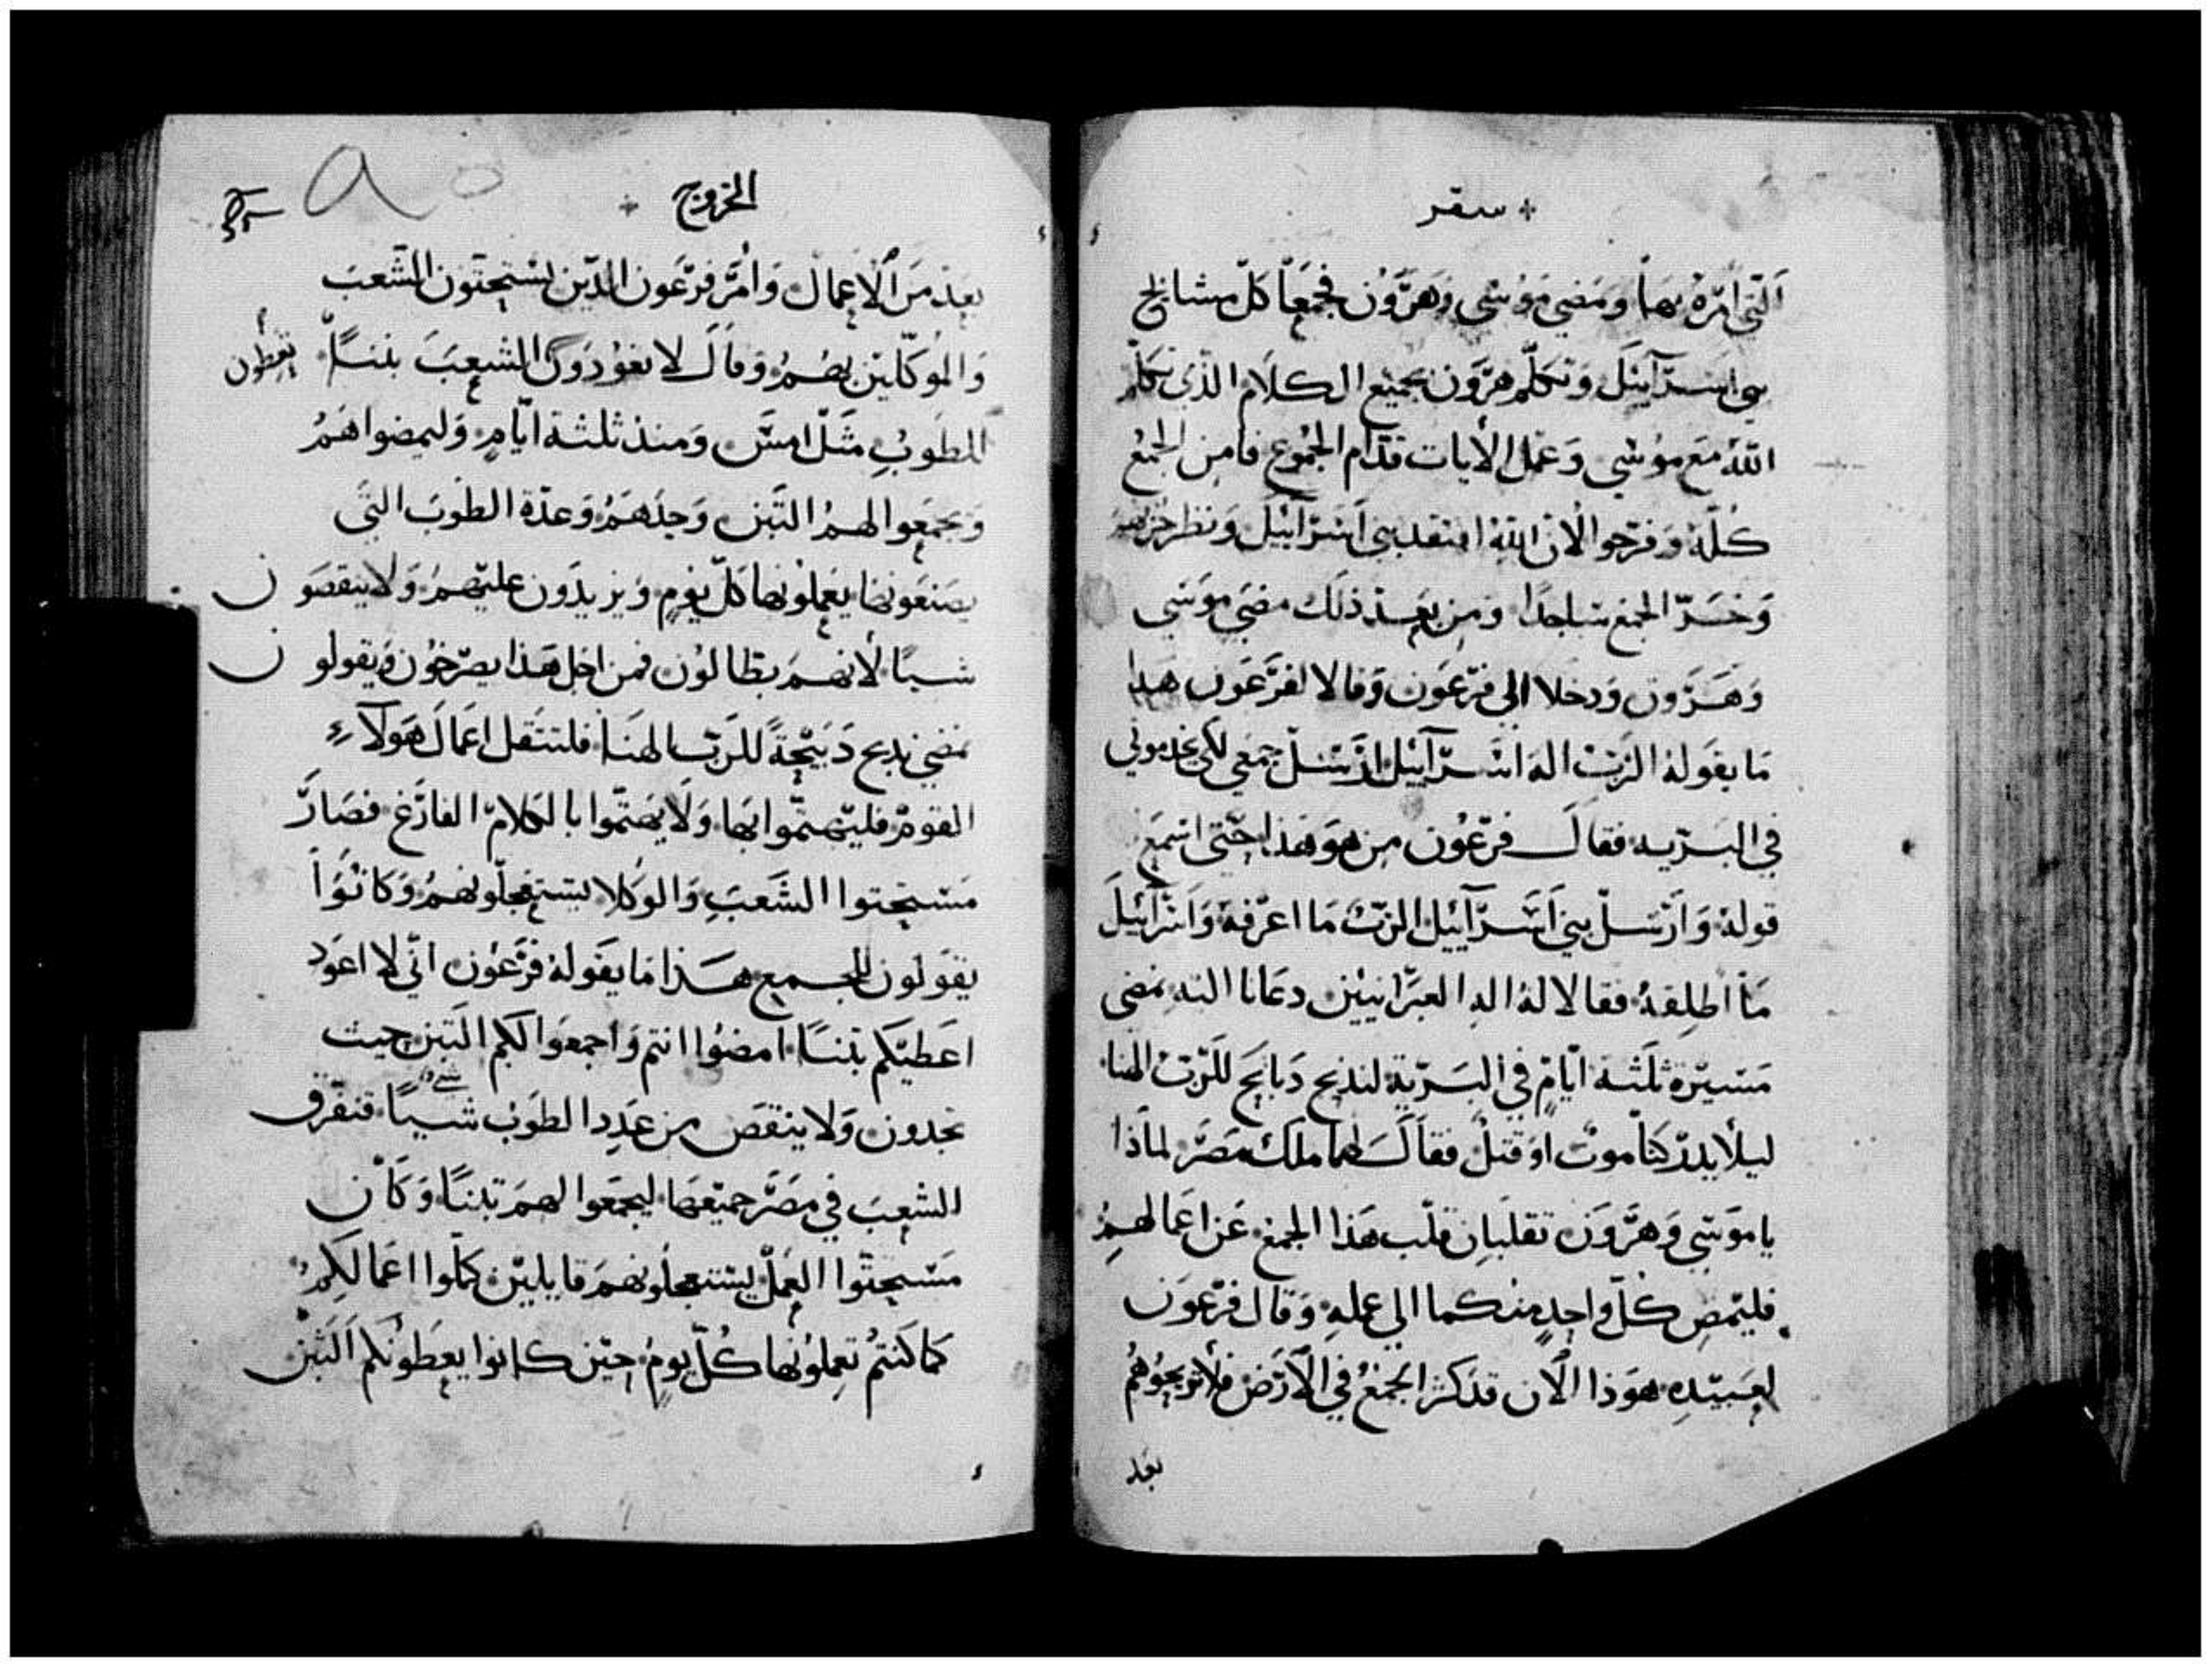 سفر
الّتي امره بها ومضي موسي وهرون فجمعا كلّ مشايخ
بني اسرآييل وتكلّم هرون بجميع الكلام الذي تكلم
اللّه مع موسي وعمل الأيات قدّام الجموع فامن الجمع
كلّه وفرحوا الان اللّه افتقد بني اسرآييل ونظر حزنهم
وخرّ الجمع ساجدا ومن بعد ذلك مضي موسي
وهرون ودخلا الي فرعون وقالا لفرعون هذا
ما يقوله الرّبّ اله اسرآييل ارسل جمعي لكي يخدموني
في البريه فقال فرعون من هو هذا حتّي اسمع
قوله وارسل بني اسرآييل الرّبّ ما اعرفه واسرآييل
ما اطلقه فقالا له اله العبرانيين دعانا اليه نمضي
مسيرة ثلثة ايّام في البرّية لنذبح دبايح للرّبّ الهنا
ليلا يدركنا موت او قتل فقال لهما ملك مصر لماذا
يا موسي وهرون تقلبان قلب هذا الجمع عن اعمالهم
فليمض كلّ واحد منكما الي عمله وقال فرعون
لعبيده هوذا الآن قد كثر الجمع في الآرض فلا تريحوهم
بعد
الخروج
بعد من الاعمال وامر فرعون الدّين يستحتون الشّعب
والموكّلين بهم وقال لا تعودون الشعب تبنا تعطون
للطوب مثل امس ومنذ ثلثة ايّام وليمضوا هم
ويجمعوا لهم التبن وحدهم وعدّة الطوب التي
يصنعونها يعملونها كلّ يوم ويزيدون عليهم ولا ينقصون
شيا لأنهم بطالون فمن اجل هذا يصرخون ويقولون
نمضي نذبح دبيحة للرّب الهنا فلتثقل اعمال هولآء
القوم فليهتمّوا بها ولا يهتمّوا بالكلام الفارغ فصار
مستحتوا الشعب والوكلا يستعجلونهم وكانوا
يقولون للجميع هذا ما يقوله فرعون انّي لا اعود
اعطيكم تبنا امضوا انتم واجمعوا لكم التبن حيت
تجدون ولا ينقص من عدد الطوب شيا فتفرّق
الشعب في مصر جميعها ليجمعوا لهم تبنا وكان
مستحتّوا العمل يستعجلونهم قايلين كمّلوا اعمالكم
كما كنتم تعملونها كلّ يوم حين كانوا يعطونكم التبن